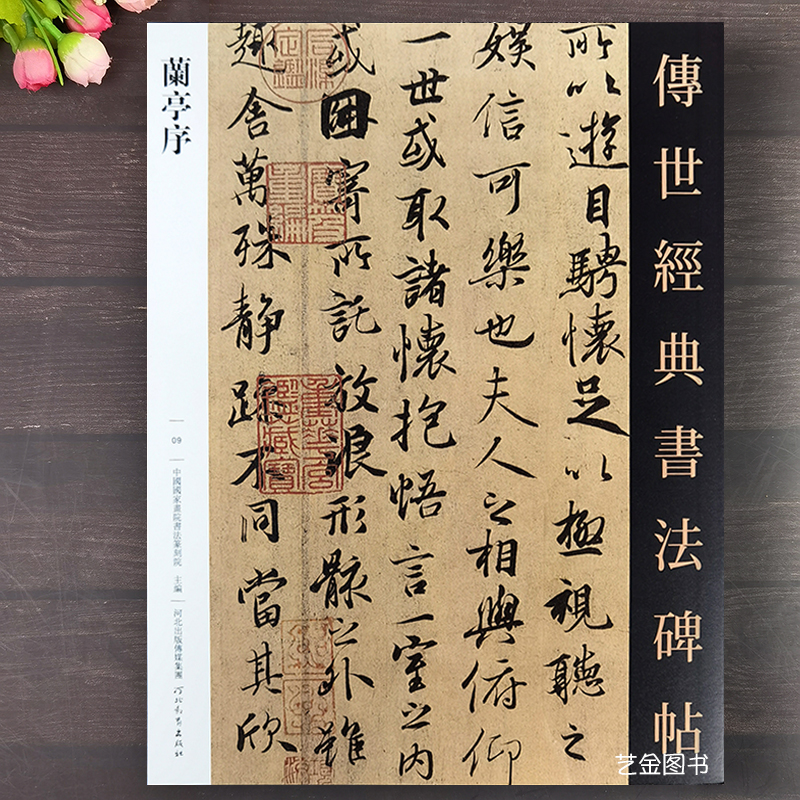 傳世經典書法碑帖
所以遊目騁懷足以極視聽之
娛信可樂也夫人之相與俯仰
一世或取諸懷抱悟言一室之内
或因寄所託放浪形骸之外雖
趣舍萬殊静躁不同當其欣
蘭亭序
09
中國國家畫院書法篆刻院 主編
河北出版傳媒集團
河北教育出版社
艺金图书